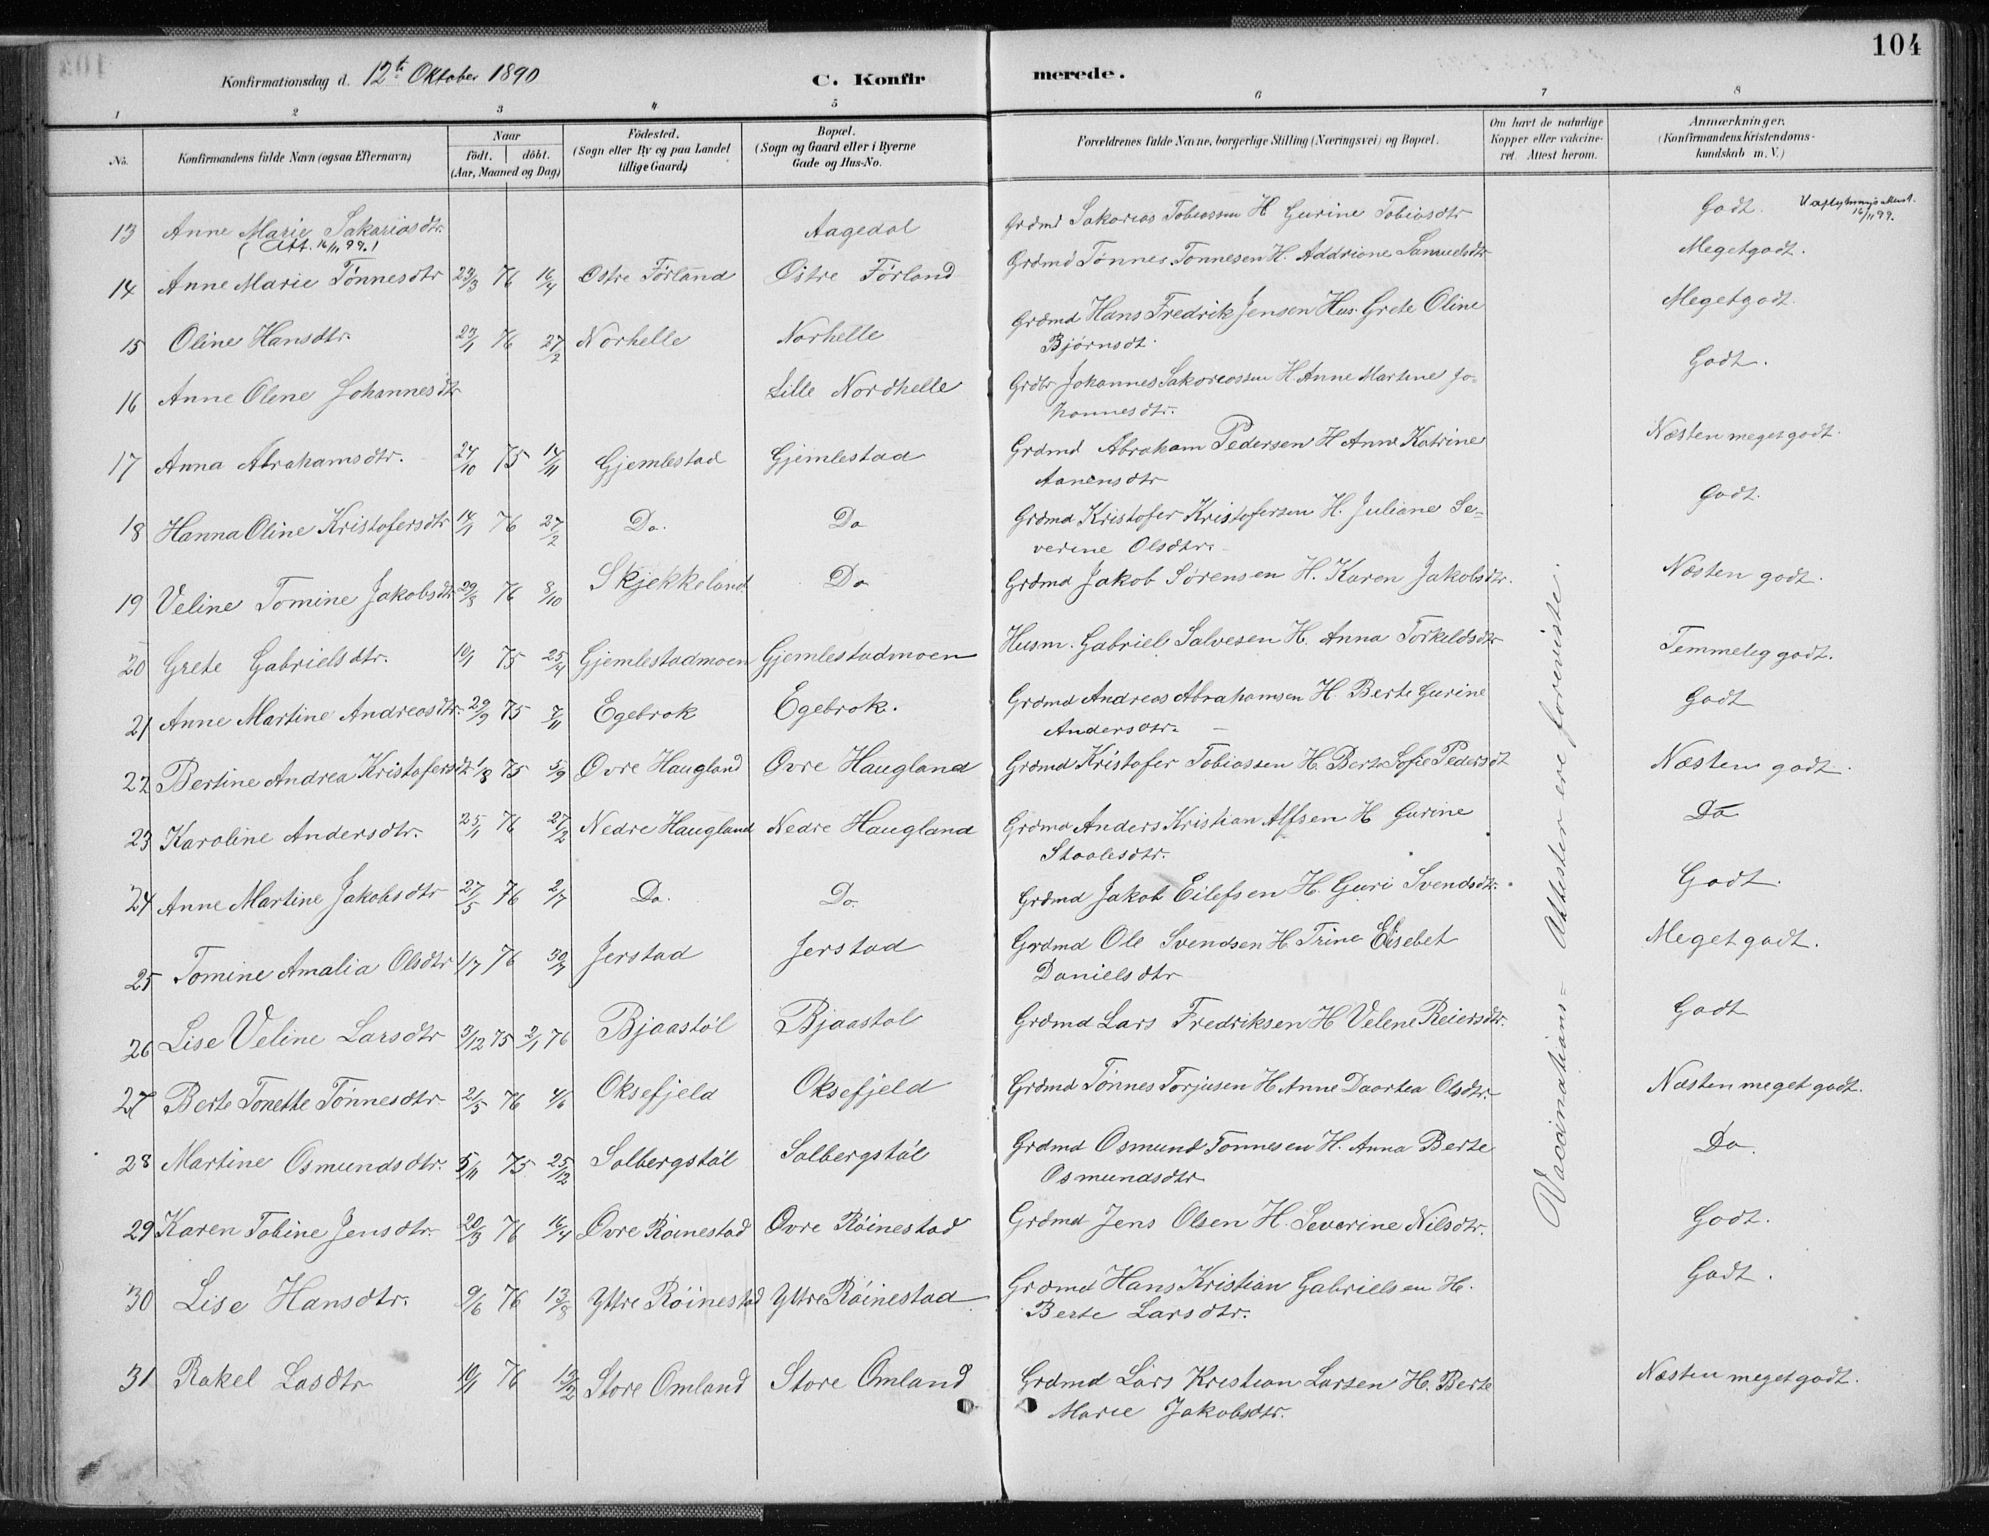 104
Konfirmationsdag d. 12te Oktober 1890 C. Konfirmerede.
1 2 3 4 5 6 7 8
No. Konfirmandens fulde Navn (ogsaa Efternavn) Naar födt. döbt. (Aar, Maaned og Dag) Födested. (Sogn eller By og paa Landet tillige Gaard) Bopæl. (Sogn og Gaard eller i Byerne Gade og Hus-No. Forældrenes fulde Navne, borgerlige Stilling (Næringsvei) og Bopæl. Om havt de naturlige Kopper eller vakcineret. Attest herom. Anmærkninger. (Konfirmandens Kristendomskundskab m. V.)
13 Anne Marie Sakariasdtr. Aagedal Grdmd Sakarias Tobiassen H Gurine Tobiasdtr Godt.
(Att. 16/11 99.) 16/11 99.
14 Anne Marie Tønnesdtr 29/3 76 16/4 Østre Førland Østre Førland Grdmd Tønnes Tønnesen H. Addriane Samuelsdtr Megetgodt.
15 Oline Hansdtr. 23/1 76 27/2 Norhelle Norhelle Grdmd Hans Fredrik Jensen Hus. Grete Oline Megetgodt.
Bjørnsdt.
16 Anne Olene Johannesdtr Lille Nordhelle Grdbr Johannes Sakariassen H. Anne Martine Jo- Godt.
hannesdtr.
17 Anna Abrahamsdtr. 24/10 75 14/11 Gjemlestad Gjemlestad Grdmd Abraham Pedersen H Anne Katrine Næsten megetgodt.
Aanensdtr
18 Hanna Oline Kristofersdtr 14/1 76 27/2 Do. Do Grdmd Kristofer Kristofersen H. Juliane Se- Godt.
verine Olsdtr.
19 Veline Tomine Jakobsdtr 29/8 76 8/10 Skjekkeland Do Grdmd Jakob Sørensen H. Karen Jakobsdtr. Næsten godt.
20 Grete Gabrielsdtr. 10/1 75 25/4 Gjemlestadmoen Gjemlestadmoen Husm. Gabriel Salvesen H. Anna Torkeldsdtr Temmelig godt.
21 Anne Martine Andreasdtr. 29/9 75 7/11 Egebrok Egebrok. Grdmd Andreas Abrahamsen H. Berte Gurine Godt
Andersdtr.
22 Bertine Andrea Kristofersdtr 1/8 75 5/9 Øvre Haugland Øvre Haugland Grdmd Kristofer Tobiassen H. Berte Sofie Pedersdt Næsten godt.
23 Karoline Andersdtr. 25/1 76 27/2 Nedre Haugland Nedre Haugland Grdmd Anders Kristian Alfsen H Gurine Do
Staalesdtr.
24 Anne Martine Jakobsdtr 27/5 76 2/7 Do. Do. Grdmd Jakob Eilefsen H. Guri Svendsdtr. Godt.
25 Tomine Amalia Olsdtr 1/7 76 30/7 Jerstad Jerstad Grdmd Ole Svendsen H Trine Elisebet Megetgodt.
Danielsdtr
26 Lise Veline Larsdtr 3/12 75 2/1 76 Bjaastøl Bjaastøl Grdmd Lars Fredriksen H Velene Reiersdtr. Godt
27 Berte Tonette Tønnesdtr 21/5 76 4/6 Oksefjeld Oksefjeld Grdmd Tønnes Torjusen H Anne Daartea Olsdtr. Næsten meget godt.
28 Martine Osmundsdtr. 5/11 75 25/12 Solbergstøl Solbergstøl Grdmd Osmund Tønnesen H. Anna Berte Do.
Osmundsdtr
29 Karen Tobine Jensdtr. 20/3 76 16/4 Øvre Røinestad Øvre Røinestad Grdmd Jens Olsen H. Severine Nilsdtr. Godt.
30 Lise Hansdtr. 9/6 76 13/8 Yttre Røinestad Yttre Røinestad Grdmd Hans Kristian Gabrielsen H. Godt.
Berte Larsdtr.
31 Rakel Lasdtr 10/1 76 13/2 Store Omland Store Omland Grdmd Lars Kristian Larsen H. Berte Næsten megetgodt.
Marie Jakobsdtr.
Vaccinations-Attester ere foreviste.